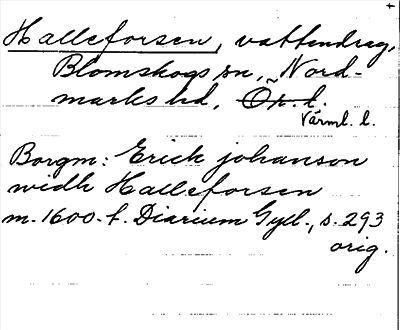 Halleforsen, vattendrag,
Blomskogs sn, Nord-
marks hd, Ör. l.
Värml. l.
Borgm: Erick johanson
widh Halleforsen
m. 1600-t. Diarium Gyll., s. 293
orig.